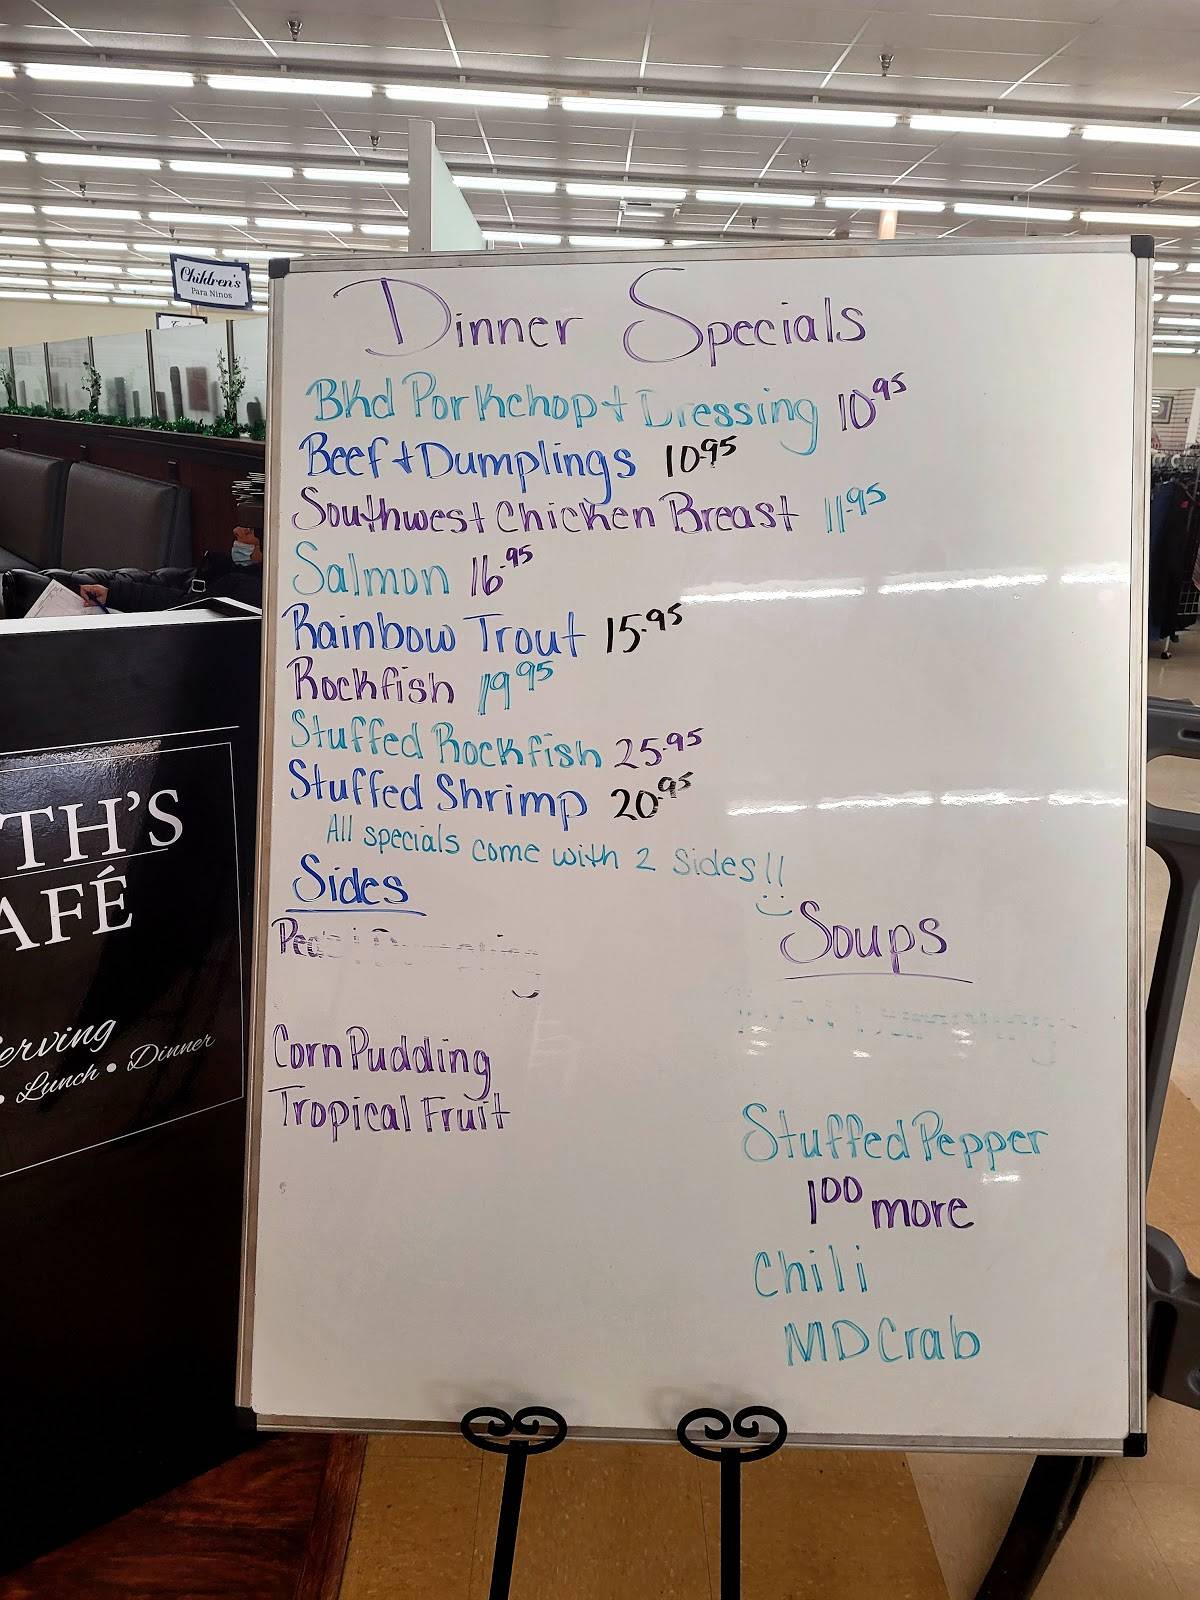 Children's
Para Ninos
Dinner Specials
Bkd Porkchop + Dressing 10.95
Beef + Dumplings 10.95
Southwest Chicken Breast 11.95
Salmon 16.95
Rainbow Trout 15.95
Rockfish 19.95
Stuffed Rockfish 25.95
Stuffed Shrimp 20.95
All specials come with 2 sides!!
Sides
Corn Pudding
Tropical Fruit
Soups
Stuffed Pepper
1.00 more
Chili
MD Crab
TH'S
AFÉ
erving
• Lunch • Dinner